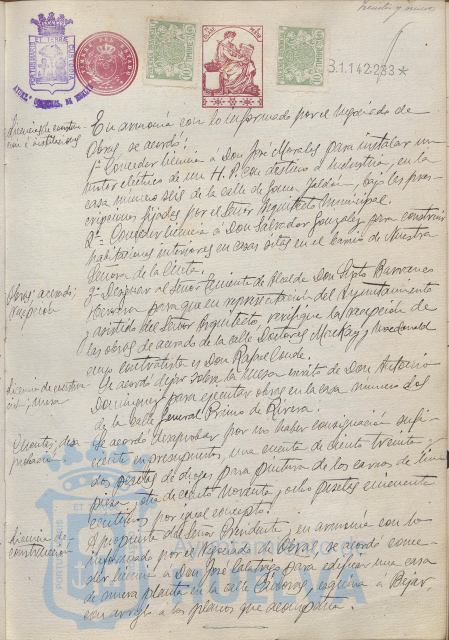 3.1.142.233*
licencia de construc-
ción e instalaciones
En armonía con lo informado por el Negociado de
Obras se acordó:
1º Conceder licencia a Don José Morales para instalar un
motor eléctrico de un H.P. con destino a industria, en la
casa número seis de la calle de
bajo las pres-
cripciones fijadas por el Señor Arquitecto Municipal.
2º= Conceder licencia a Don Salvador González para construir
habitaciones interiores en casas sitas en el barrio de Nuestra
Señora de la Cinta.
Obras; acerado;
recepción
3º Designar al Señor Teniente de Alcalde Don Sixto Barranco
para que en representación del Ayuntamiento
y asistido del Señor Arquitecto, verifique la recepción de
las obras de acerado de la calle Doctores Mackay y Macdonald
cuyo contratista es Don Rafael Conde.
licencia de construc-
ción; mesa
Se acordó dejar sobre la mesa escrito de Don Antonio
Domínguez para ejecutar obras en la casa número dos
de la calle General Primo de Rivera.
Cuentas; desa-
probación
Se acordó desaprobar por no haber consignación sufi-
ciente en presupuesto, una cuenta de ciento treinta y
dos pesetas de drogas para pintura de los carros de lim-
pieza y otra de ciento noventa y ocho pesetas cincuenta
céntimos por igual concepto.
licencia de
construcción
A propuesta del Señor Presidente, en armonía con lo
informado por el Negociado de Obras, se acordó conce-
der licencia a Don José Calatrigo para edificar una casa
de nueva planta en la calle Cánovas, esquina a Béjar,
con arreglo a los planos que acompaña.